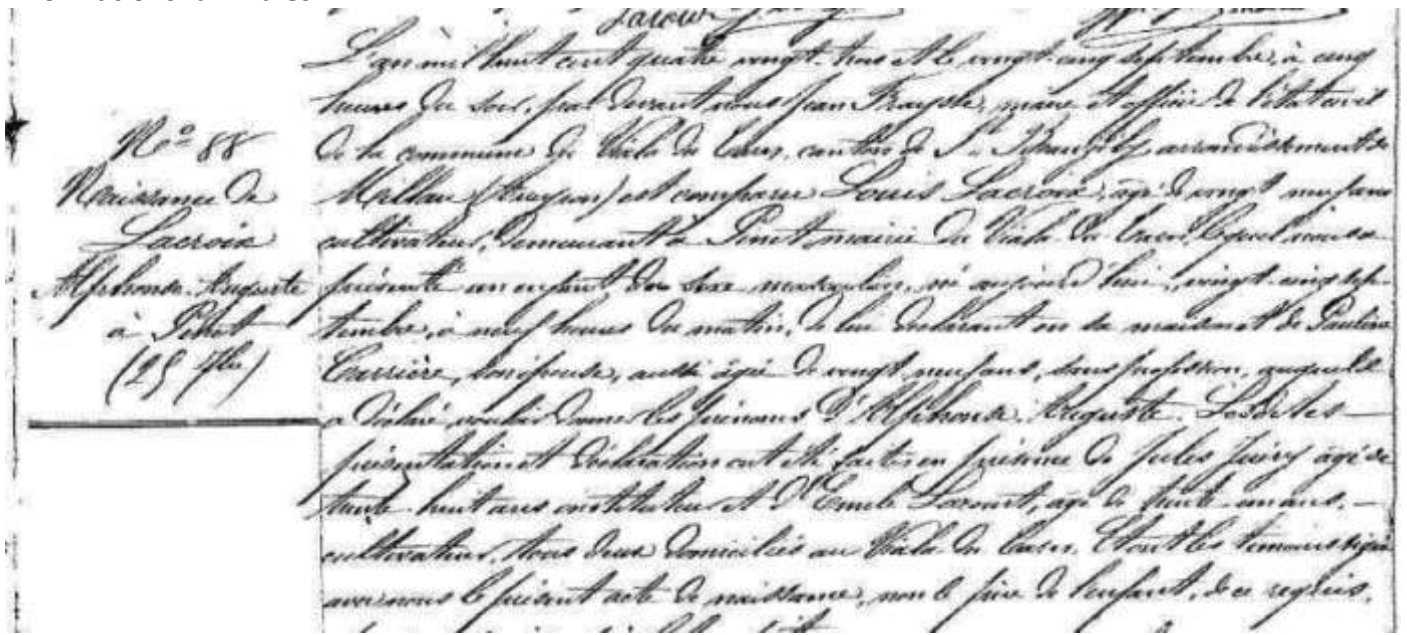 N° 88
Naissance de
Lacroix
Alphonse Auguste
à Pinet
(25 7bre)
L'an mil huit cent quatre vingt-trois et le vingt-cinq septembre, à cinq
heures du soir, par devant nous Jean Fraysse, maire et officier de l'état civil
de la commune du Viala du Tarn, canton de St Beauzély, arrondissement de
Millau (Aveyron) est comparu Louis Lacroix, âgé de vingt neuf ans
cultivateur, demeurant à Pinet mairie du Viala du Tarn, lequel nous a
présenté un enfant du sexe masculin, né aujourd'hui, vingt-cinq sep-
tembre, à neuf heures du matin, de lui déclarant en sa maison et de Pauline
Carrière, son épouse, aussi âgée de vingt neuf ans, sans profession, auquel il
a déclaré vouloir donner les prénoms d'Alphonse Auguste. Lesdites
présentation et déclaration ont été faites en présence de Jules âgé de
trente-huit ans instituteur et d'Emile âgé de trente-un ans,
cultivateur, tous deux domiciliés au Viala du Tarn. Et ont les témoins signé
avec nous le présent acte de naissance, non le père de l'enfant, de ce requis,